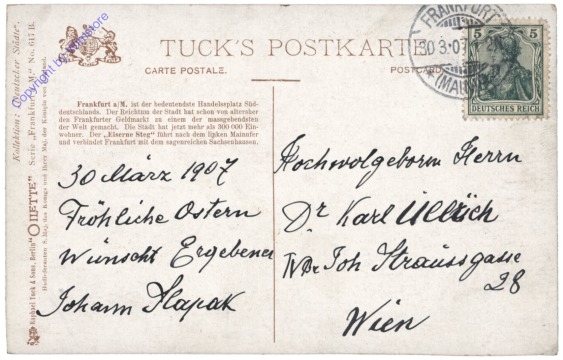 TUCK'S POSTKARTE
CARTE POSTALE.
POSTCARD
FRANKFURT
30 3.07
(MAIN)
5 5
DEUTSCHES REICH
Kollektion: „Deutscher Städte“.
Serie „Frankfurt a/M.“ No. 617 B.
"OILETTE"
Raphael Tuck & Sons, Berlin
Frankfurt a/M. ist der bedeutendste Handelsplatz Süd-
deutschlands. Der Reichtum der Stadt hat schon von altersher
den Frankfurter Geldmarkt zu einem der massgebendsten
der Welt gemacht. Die Stadt hat jetzt mehr als 300 000 Ein-
wohner. Der „Eiserne Steg“ führt nach dem linken Mainufer
und verbindet Frankfurt mit dem sagenreichen Sachsenhausen.
30 März 1907
Fröhliche Ostern
Wünscht Ergebener
Johann Slapak
Hochwolgeborn Herrn
Dr Karl Ullrich
Joh Straussgasse
28
Wien